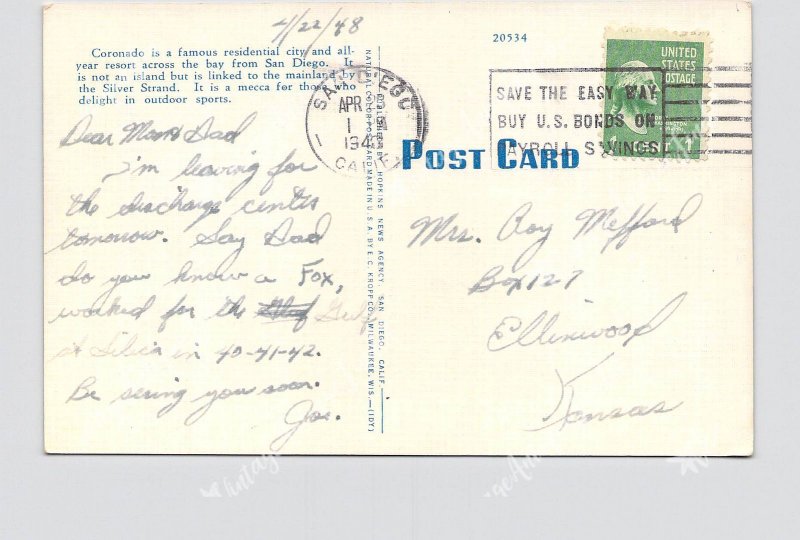 4/22/48
20534
Coronado is a famous residential city and all-
year resort across the bay from San Diego. It
is not an island but is linked to the mainland by
the Silver Strand. It is a mecca for those who
delight in outdoor sports.
Dear Mom & Dad
I'm leaving for
the discharge center
tomorrow. Say Dad
do you know a Fox,
worked for the Gulf
at Silica in 40-41-42.
Be seeing you soon.
Joe.
PUBLISHED BY HOPKINS NEWS AGENCY, SAN DIEGO, CALIF.
NATURAL COLOR POST CARD MADE IN U.S.A. BY E. C. KROPP CO., MILWAUKEE, WIS.—(IDY)
SAN DIEGO
APR
CALIF
POST CARD
SAVE THE EASY WAY
BUY U.S. BONDS ON
PAYROLL SAVINGS
UNITED
STATES
POSTAGE
1¢
Mrs. Roy Mefford
Box 127
Ellinwood
Kansas